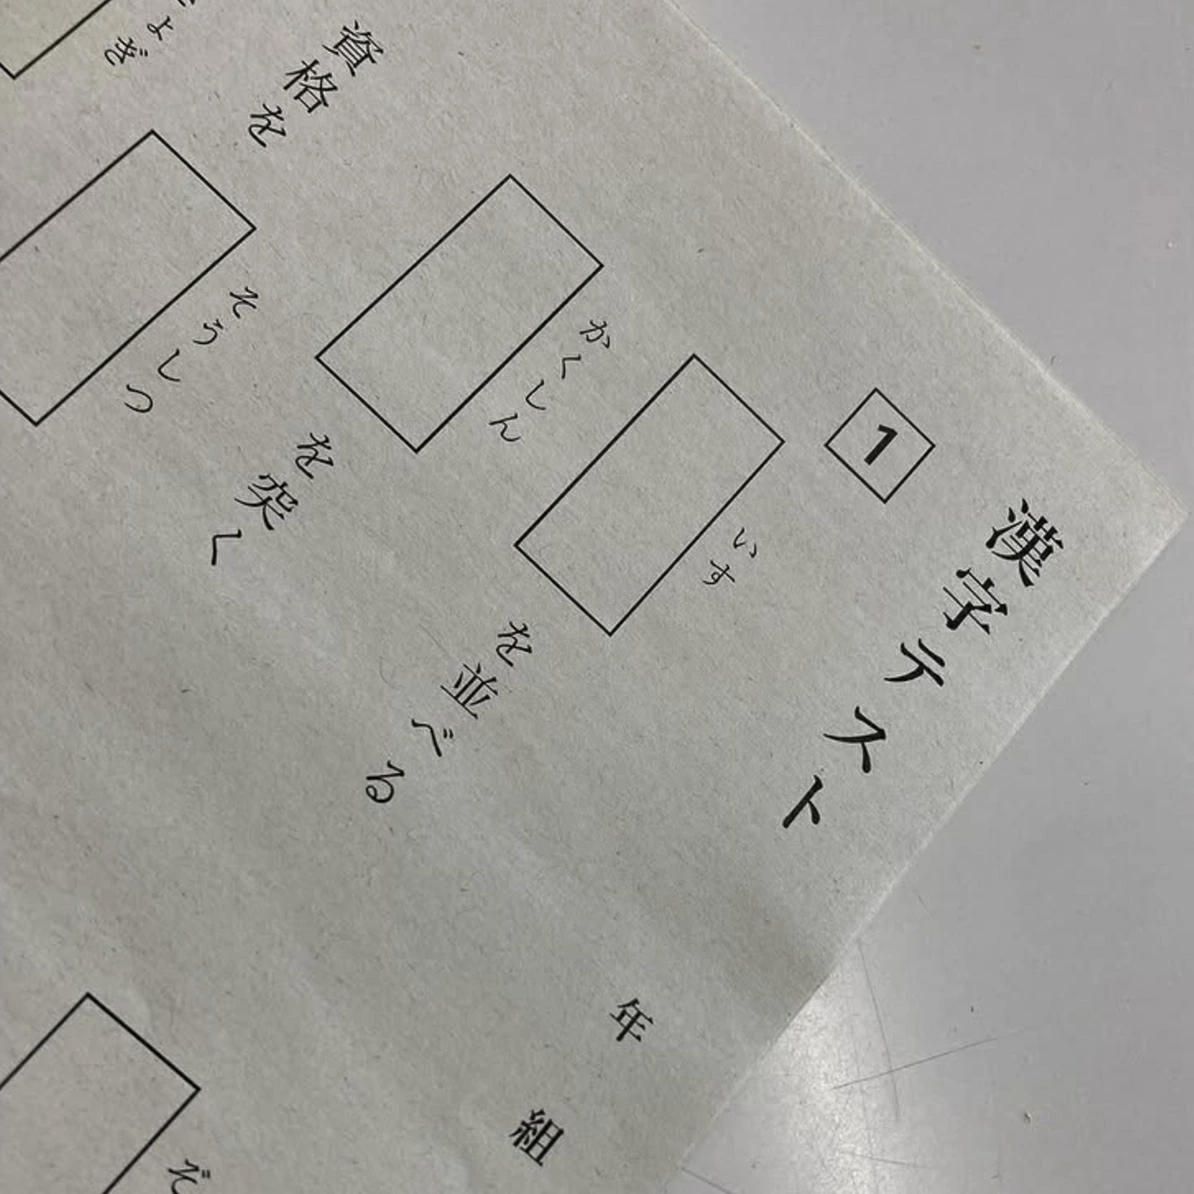 漢字テスト
年 組
1
いす
を並べる
かくしん
を突く
資格を
そうしつ
ょぎ
ぞ